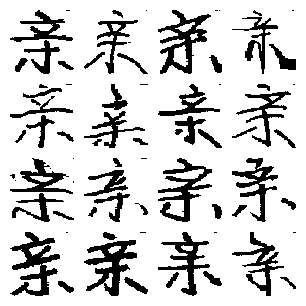 亲亲亲亲
亲亲亲亲
亲亲亲亲
亲亲亲亲